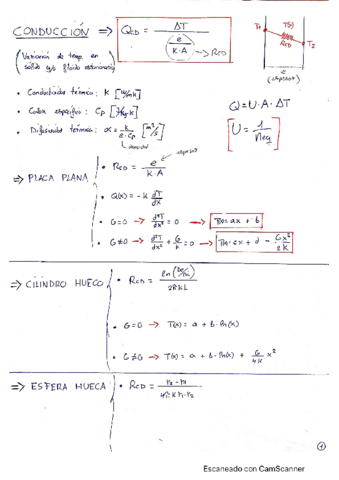 CONDUCCIÓN => Q̇CD = ΔT / (e / K·A) → RCD
(Variación de temp. en sólido y/o fluido estacionario)
T1 T(x) RCD T2
e (espesor)
• Conductividad térmica: K [W/mK]
• Calor específico: Cp [J/kg·K]
• Difusividad térmica: α = k / (ρ·Cp) [m²/s]
densidad
Q̇ = U·A·ΔT
[U = 1 / Req]
=> PLACA PLANA
• RCD = e / K·A
espesor
• Q(x) = -k dT/dx
• G=0 → d²T/dx² = 0 → T(x) = ax + b
• G≠0 → d²T/dx² + G/k = 0 → T(x) = cx + d - Gx²/2K
=> CILINDRO HUECO
• RCD = / 2πKL
• G=0 → T(x) = a + b·ln(x)
• G≠0 → T(x) = a + b·ln(x) + G/4K x²
=> ESFERA HUECA
• RCD = r2 - r1 / 4π·K·r1·r2
1
Escaneado con CamScanner